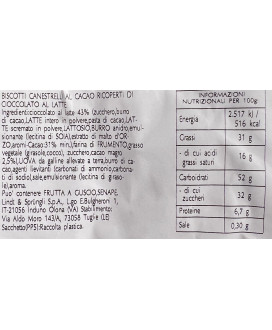 BISCOTTI CANESTRELLI AL CACAO RICOPERTI DI
CIOCCOLATO AL LATTE
Ingredienti:cioccolato al latte 43% (zucchero,burro
di cacao,LATTE intero in polvere,pasta di cacao,LAT-
TE scremato in polvere,LATTOSIO,BURRO anidro,emul-
sionante (lecitina di SOIA),estratto di malto d'OR-
ZO,aromi-Cacao:31% min.),farina di FRUMENTO,grasso
vegetale (girasole,cocco), zucchero,cacao magro
2,5%,UOVA da galline allevate a terra,burro di ca-
cao,agenti lievitanti (carbonati di ammonio,carbona-
ti di sodio),sale,emulsionante (lecitina di giraso-
le),aroma.
Puo' contenere FRUTTA A GUSCIO,SENAPE.
Lindt & Sprungli S.p.A. L.go E.Bulgheroni 1,
IT-21056 Induno Olona (VA) Stabilimento:
Via Aldo Moro 143/A, 73058 Tuglie (LE)
Sacchetto(PP5):Raccolta plastica.
INFORMAZIONI
NUTRIZIONALI PER 100g
Energia 2.517 kJ /
516 kcal
Grassi 31 g
- di cui acidi
grassi saturi 16 g
Carboidrati 52 g
- di cui
zuccheri 32 g
Proteine 6,7 g
Sale 0,30 g